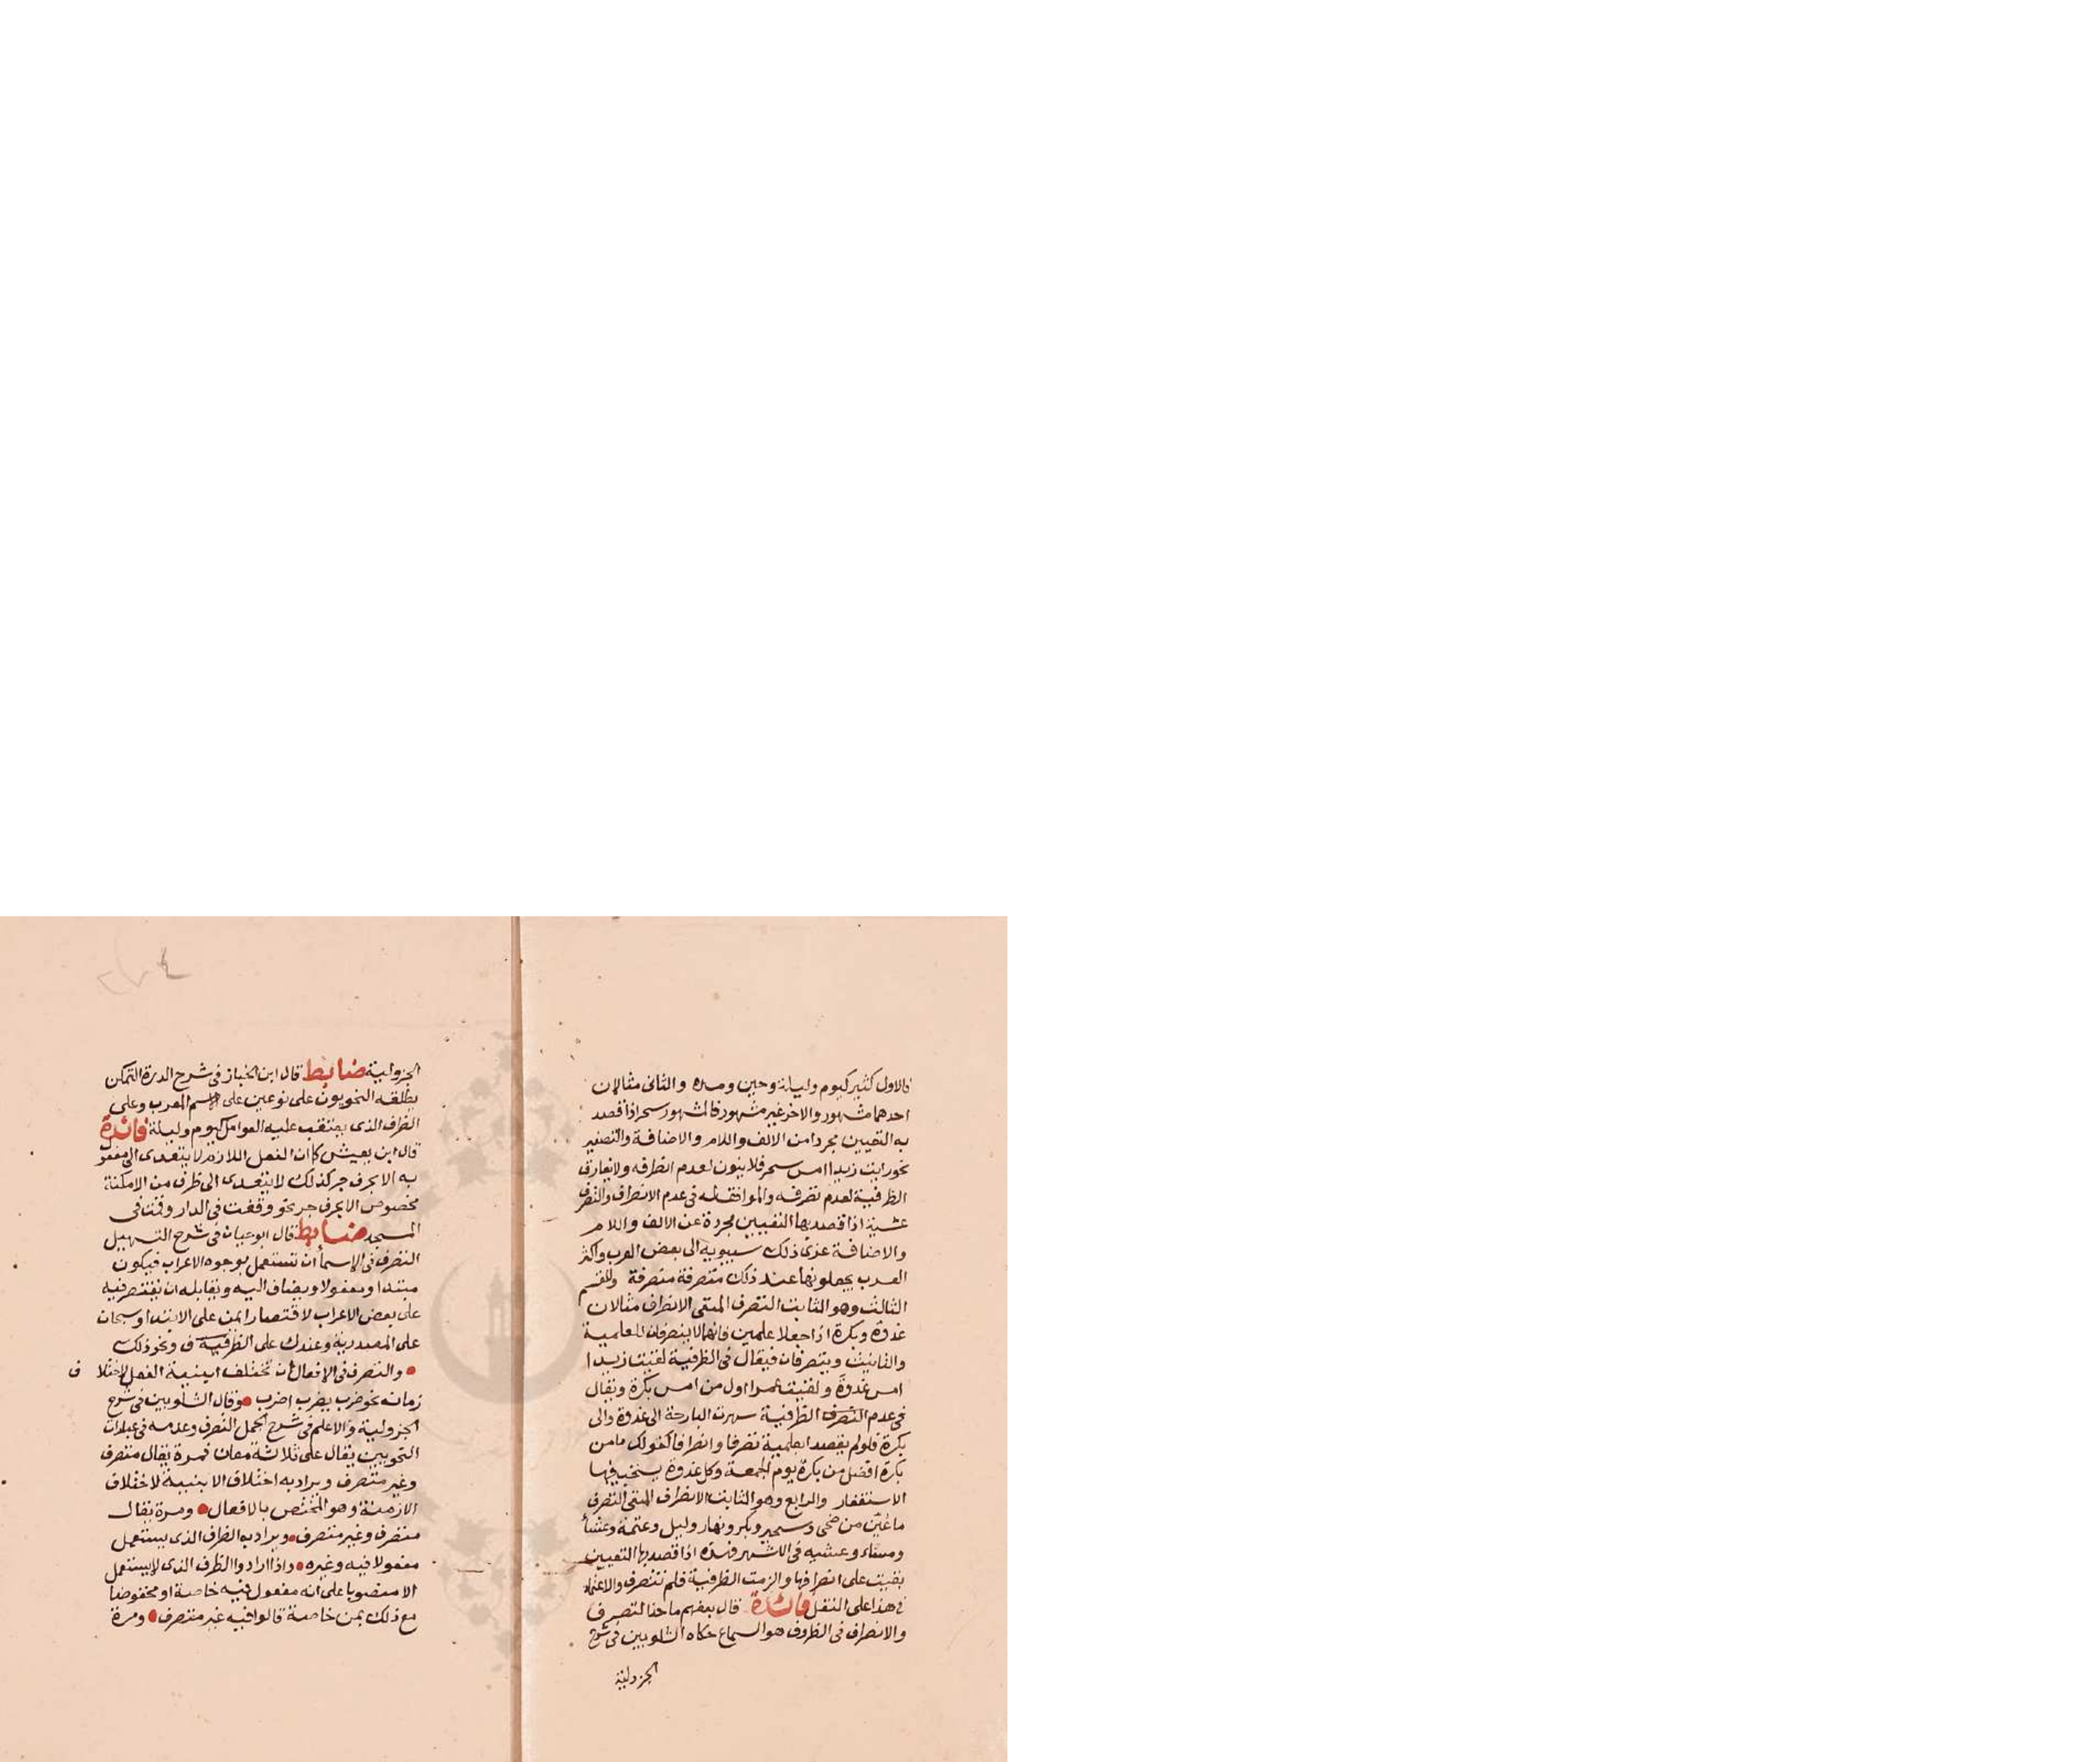 فالاول كثير كيوم وليلة وحين ومده والثاني مثالان
احدهما مشهور والاخر غير مشهور فالمشهور سحر اذا قصد
به التعيين مجردا من الالف واللام والاضافة والتصغير
نحو رايت زيدا امس سحر فلا ينون لعدم انصرافه ولا يفارق
الظرفية لعدم تصرفه والموافق له في عدم الانصراف والتصرف
عشية اذا قصد بها التعيين مجردة عن الالف واللام
والاضافة عزى ذلك سيبويه الى بعض العرب واكثر
العرب يجعلونها عند ذلك متصرفة منصرفة والقسم
الثالث وهو الثابت التصرف المنفي الانصراف مثالان
غدوة وبكرة اذا جعلا علمين فانهما لا ينصرفان للعلمية
والتانيث ويتصرفان فيقال في الظرفية لقيت زيدا
امس غدوة ولقيت عمرا اول من امس بكرة ويقال
في عدم التصرف الظرفية سهرت البارحة الى غدوة والى
بكرة فلو لم يقصد العلمية تصرفا وانصرفا كقولك مامن
بكرة افضل من بكرة يوم الجمعة وكل غدوة يستحب فيها
الاستغفار والرابع وهو الثابت الانصراف المنفي التصرف
ما عين من ضحى وسحير وبكر ونهار وليل وعتمة وعشأ
ومساء وعشيه في الاشهر فهذه اذا قصد بها التعيين
بقيت على انصرافها والزمت الظرفية فلم تتصرف والاعتماد
في هذا على النقل فائدة قال بعضهم ماخذ التصرف
والانصراف في الظروف هو السماع حكاه الشلوبين في شرح
الجزولية
الجزولية ضابط قال ابن الخباز في شرح الدرة التمكن
يطلقه النحويون على نوعين على الاسم المعرب وعلى
الظرف الذي يعتقب عليه العوامل كيوم وليلة فائدة
قال ابن يعيش كما ان الفعل اللازم لا يتعدى الى مفعول
به الا بحرف جر كذلك لا يتعدى الى ظرف من الامكنة
مخصوص الا بحرف جر نحو وقفت في الدار وقمت في
المسجد ضابط قال ابو حيان في شرح التسهيل
التصرف في الاسما أن تستعمل بوجوه الاعراب فيكون
مبتدا ومفعولا ويضاف اليه ويقابله ان يقتصر فيه
على بعض الاعراب لاقتصار ايمن على الابتدا وسبحان
على المصدرية وعندك على الظرفية ونحو ذلك
والتصرف في الافعال أن تختلف ابنية الفعل لاختلاف
زمانه نحو ضرب يضرب اضرب وقال الشلوبين في شرح
الجزولية والاعلم في شرح الجمل التصرف وعدمه في عبارات
النحويين يقال على ثلاثة معان فمرة يقال متصرف
وغير متصرف ويراد به اختلاف الابنية لاختلاف
الازمنة وهو المختص بالافعال ومرة يقال
متصرف وغير متصرف ويراد به الظرف الذي يستعمل
مفعولا فيه وغيره واذا ارادوا الظرف الذي لا يستعمل
الا منصوبا على أنه مفعول فيه خاصة او مخفوضا
مع ذلك بمن خاصة قالوا فيه غير متصرف ومرة